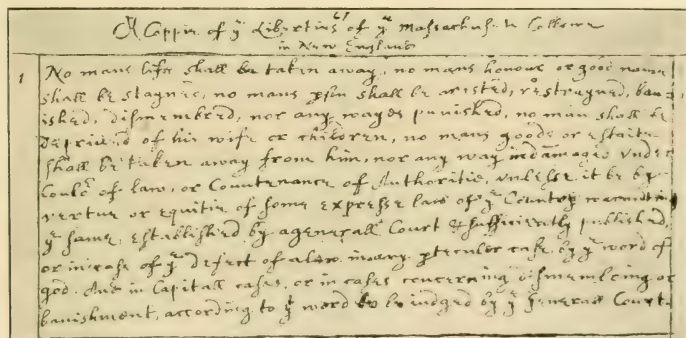 A Coppie of yͤ Liberties of yͤ Massachusets Collonie
in New England
1 No mans life shall be taken away, no mans honour or good name
shall be stayned, no mans pson shall be arested, restrayned, ban=
ished, dismembred, nor any wayes punished, no man shall be
deprived of his wife or children, no mans goods or estaite
shall be taken away from him, nor any way indamaged vnder
Coulͬ of law, or Countenance of Authoritie, vnlesse it be by
vertue or equitie of some expresse law of yͤ Country warrenting
yͤ same, established by a generall Court & sufficiently published,
or in case of yͤ defect of a law in any pteculer case by yͤ word of
god. And in Capitall cases, or in cases concerning dismembring or
banishment, according to yͭ word to be iudged by yͤ Generall Court.